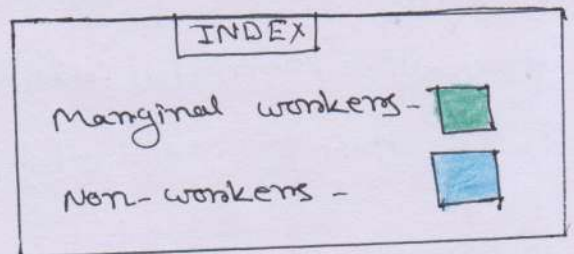 INDEX
Marginal workers-
Non-workers -